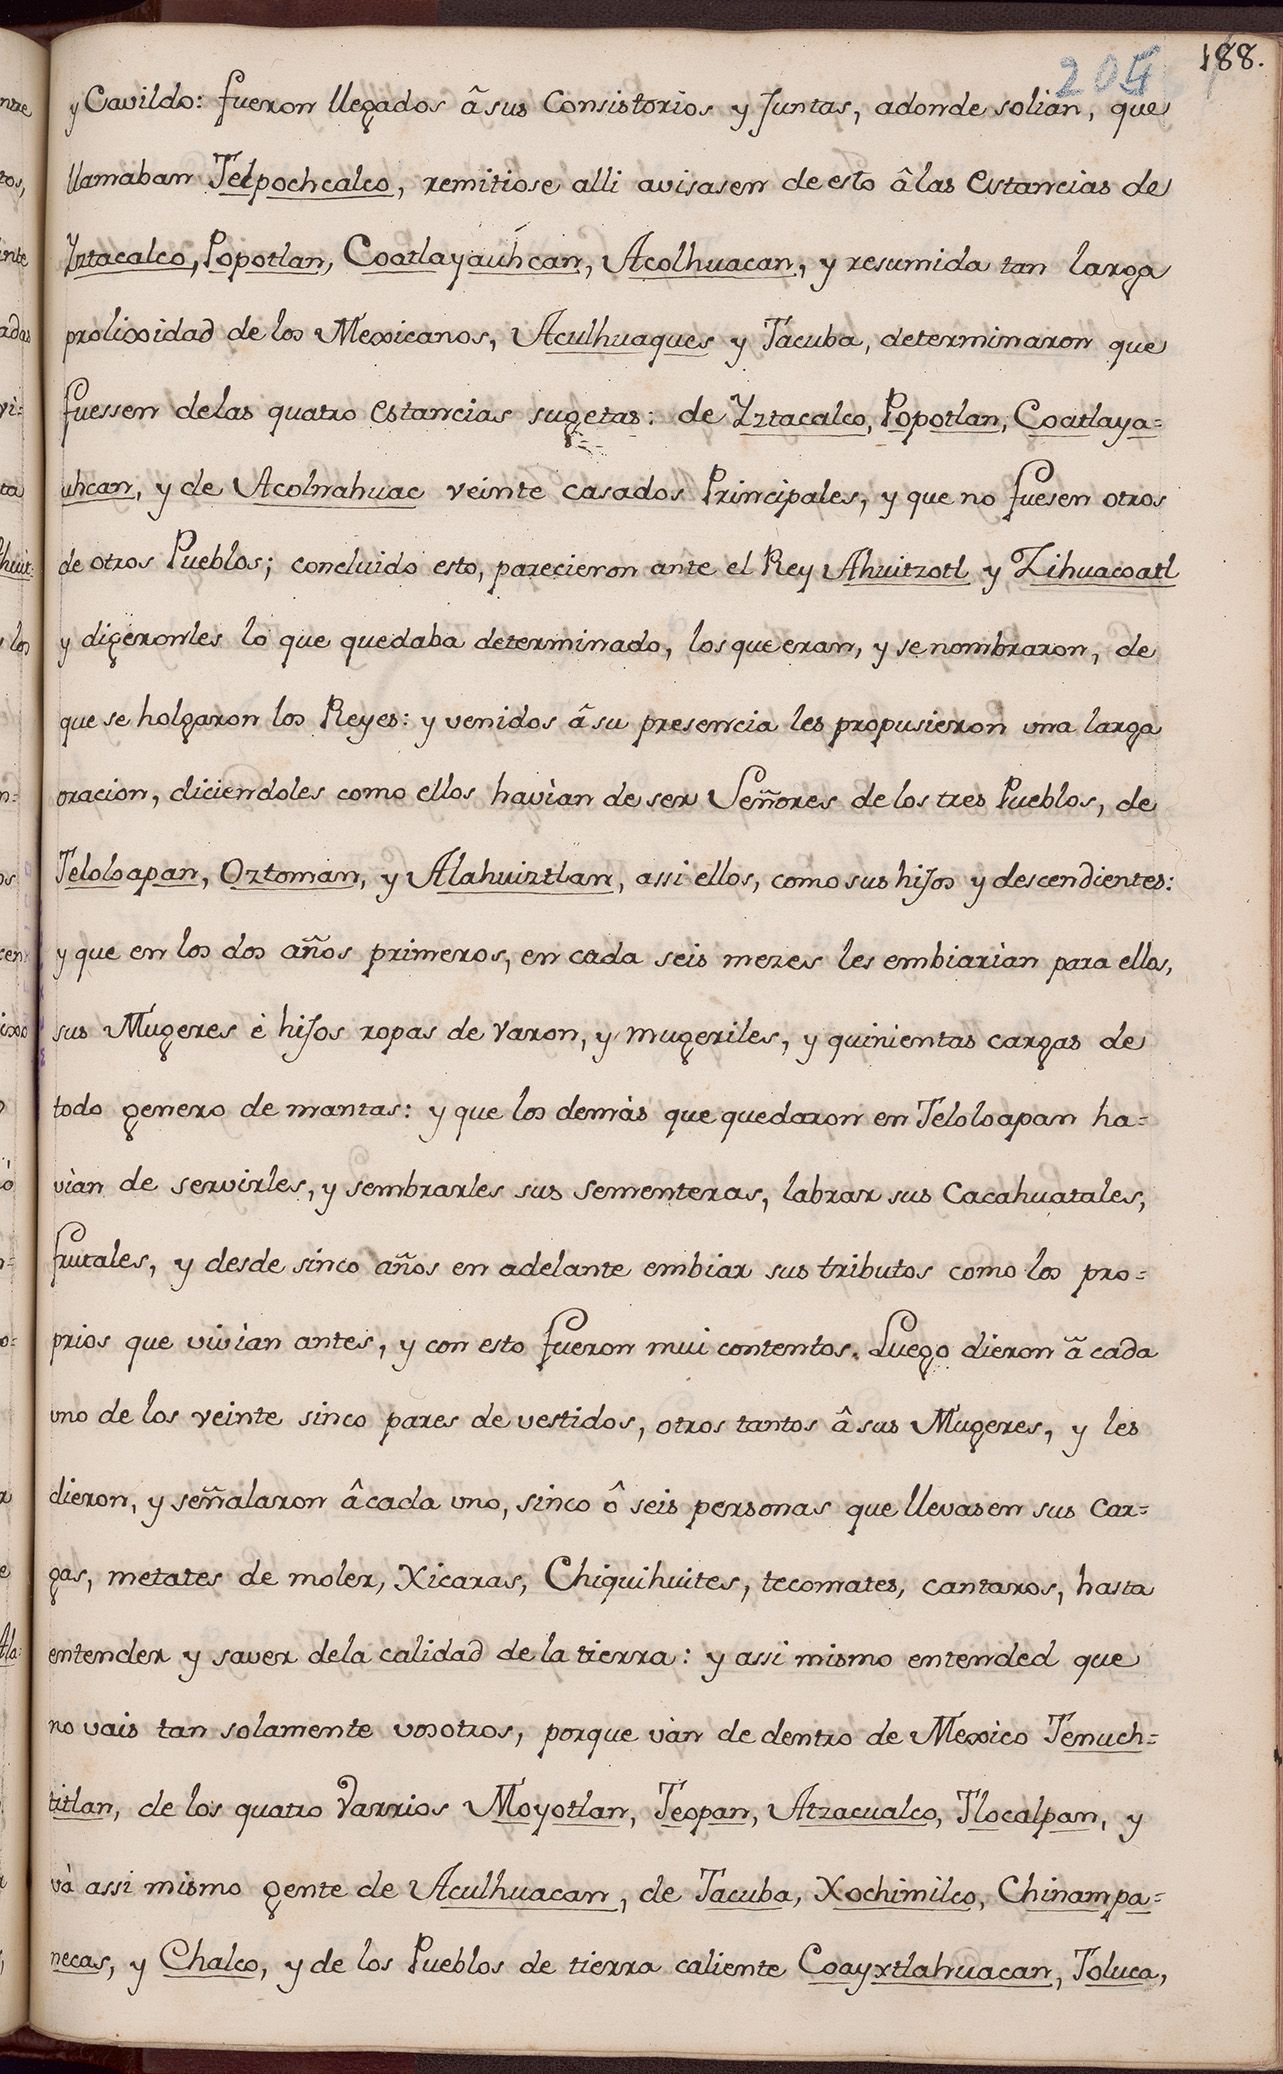 188.
y Cavildo: fueron llegados â sus Consistorios y Juntas, adonde solian, que
llamaban Telpochcalco, remitiose alli avisasen de esto â las Estancias de
Yztacalco, Popotlan, Coatlayauhcan, Acolhuacan, y resumida tan larga
prolixidad de los Mexicanos, Aculhuaques y Tacuba, determinaron que
fuessen delas quatro Estancias sugetas: de Yztacalco, Popotlan, Coatlaya=
uhcan, y de Acolnahuac veinte casados Principales, y que no fuesen otros
de otros Pueblos; concluido esto, parecieron ante el Rey Ahuitzotl y Zihuacoatl
y digeronles lo que quedaba determinado, los que eran, y se nombraron, de
que se holgaron los Reyes: y venidos â su presencia les propusieron una larga
oracion, diciendoles como ellos havìan de ser Señores de los tres Pueblos, de
Teloloapan, Oztoman, y Alahuiztlan, assi ellos, como sus hijos y descendientes:
y que en los dos años primeros, en cada seis mezes les embiarìan para ellos,
sus Mugeres è hijos ropas de varon, y mugeriles, y quinientas cargas de
todo genero de mantas: y que los demàs que quedaron en Teloloapan ha=
vìan de servirles, y sembrarles sus sementeras, labrar sus Cacahuatales,
frutales, y desde sinco años en adelante embiar sus tributos como los pro=
prios que vivìan antes, y con esto fueron mui contentos. Luego dieron â cada
uno de los veinte sinco pares de vestidos, otros tantos â sus Mugeres, y les
dieron, y señalaron â cada uno, sinco ô seis personas que llevasen sus Car=
gas, metates de moler, Xicaras, Chiquihuites, tecomates, cantaros, hasta
entender y saver dela calidad de la tierra: y assi mismo entended que
no vais tan solamente vosotros, porque vàn de dentro de Mexico Tenuch=
titlan, de los quatro Varrios Moyotlan, Teopan, Atzacualco, Tlocalpan, y
và assi mismo gente de Aculhuacan, de Tacuba, Xochimilco, Chinampa=
necas, y Chalco, y de los Pueblos de tierra caliente Coayxtlahuacan, Toluca,